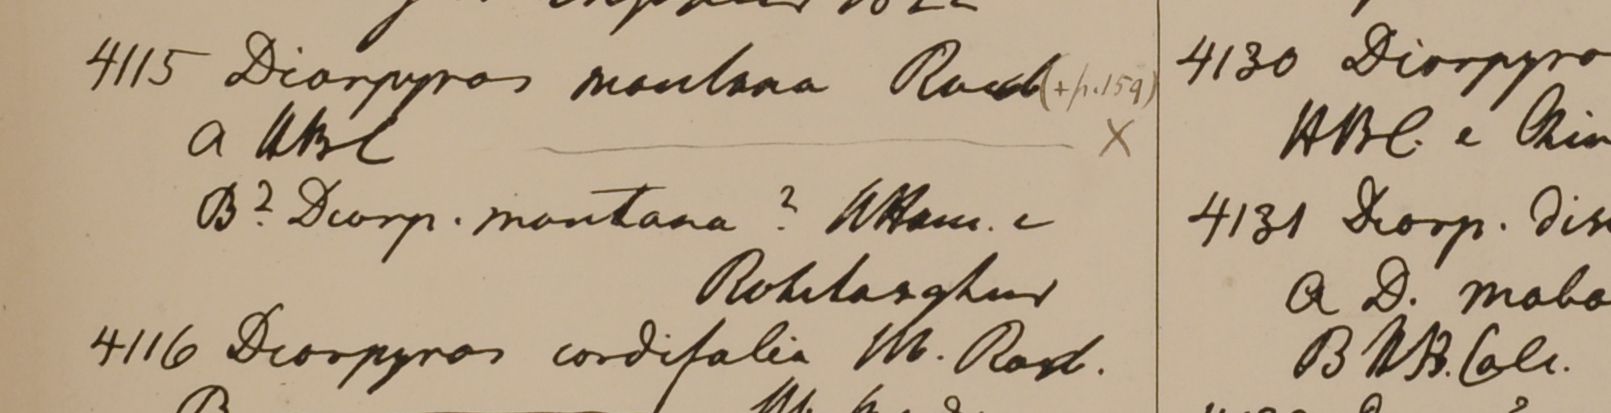 4115 Diospyros montana Roxb (+p.159)
a HBC X
B? Diosp. montana? HHam. e
Rohelasghur
4116 Diospyros cordifolia Roxb.
B
4130 Diospyro
HBC. e Chin
4131 Diosp. dis
a D. mabo
B HB. Calc.